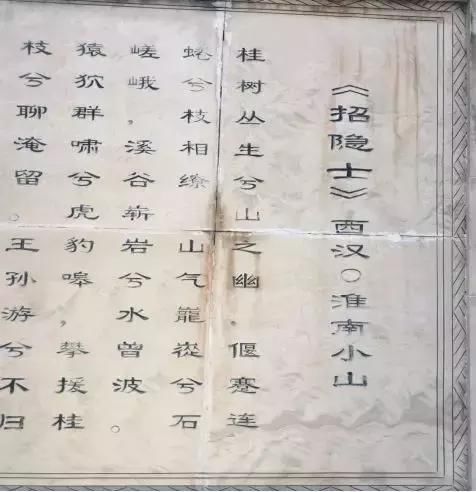 《招隐士》西汉○淮南小山
桂树丛生兮山之幽，偃蹇连
蜷兮枝相缭 山气巃嵸兮石
嵯峨，溪谷崭岩兮水曾波。
猿狖群啸兮虎豹嗥，攀援桂
枝兮聊淹留。王孙游兮不归